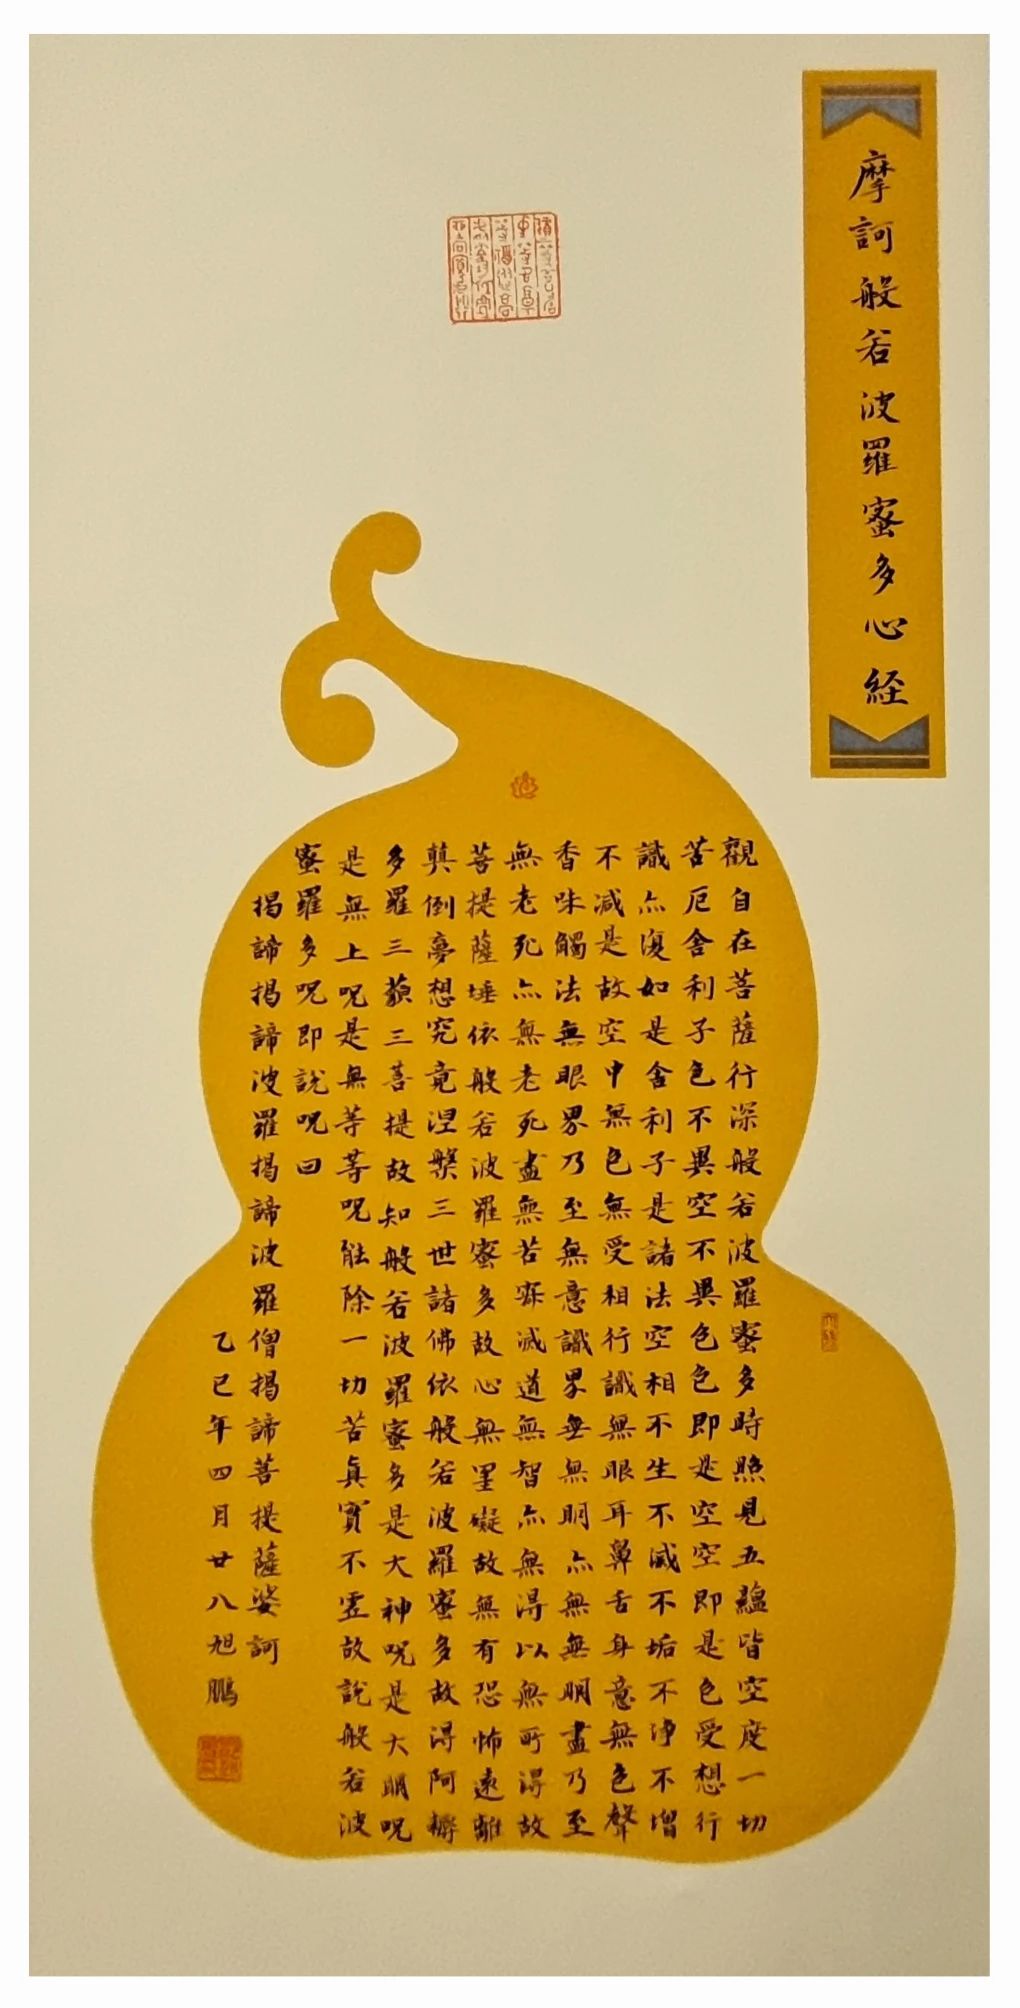 摩訶般若波羅蜜多心経
觀自在菩薩行深般若波羅蜜多時照見五蘊皆空度一切
苦厄舍利子色不異空不異色色即是空空即是色受想行
識亦復如是舍利子是諸法空相不生不滅不垢不淨不增
不減是故空中無色無受相行識無眼耳鼻舌身意無色聲
香味觸法無眼界乃至無意識界無無明亦無無明盡乃至
無老死亦無老死盡無苦寂滅道無智亦無得以無所得故
菩提薩埵依般若波羅蜜多故心無罣礙故無有恐怖遠離
顛倒夢想究竟涅槃三世諸佛依般若波羅蜜多故得阿耨
多羅三藐三菩提故知般若波羅蜜多是大神呪是大明呪
是無上呪是無等等呪能除一切苦真實不虛故說般若波
蜜羅多呪即說呪曰
揭諦揭諦波羅揭諦波羅僧揭諦菩提薩婆訶
乙巳年四月廿八旭鵬